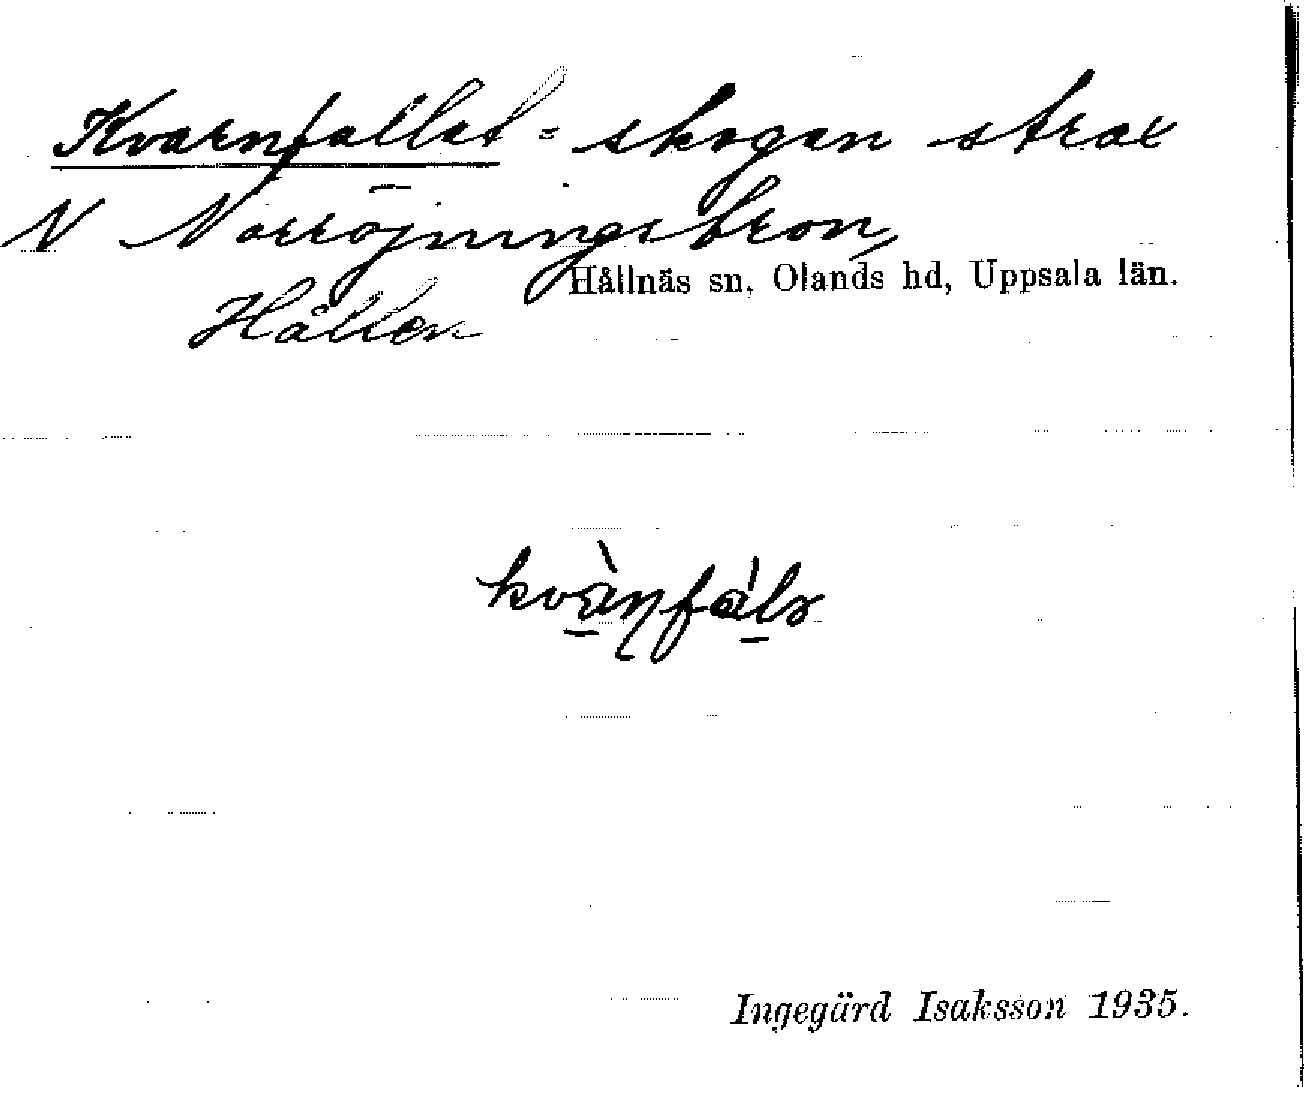 Kvarnfallet = skogen strax
N Norröjningsbron,
Hållnäs sn, Olands hd, Uppsala län.
Hållen
kvànfàlɜ
Ingegärd Isaksson 1935.